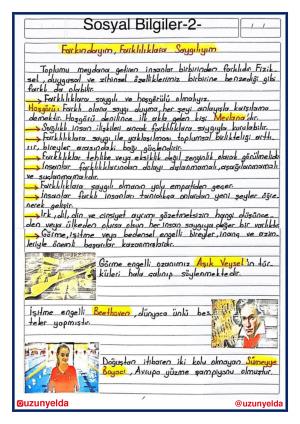 Sosyal Bilgiler-2-
Farkındayım, Farklılıklara Saygılıyım
Toplumu meydana getiren insanlar birbirinden farklıdır. Fizik-
sel, duygusal ve zihinsel özelliklerimiz birbirine benzediği gibi
farklı da olabilir.
Farklılıklara saygılı ve hoşgörülü olmalıyız.
Hoşgörü: Farklı olana saygı duyma, her şeyi anlayışla karşılama
demektir. Hoşgörü denilince ilk akla gelen kişi Mevlana'dır.
Sağlıklı insan ilişkileri ancak farklılıklara saygıyla kurulabilir.
Farklılıklara saygı ile yaklaşılması toplumsal birlikteliği arttı-
rır, bireyler arasındaki bağı güçlendirir.
Farklılıklar tehlike veya eksiklik değil zenginlik olarak görülmelidir.
İnsanlar farklılıklarından dolayı dışlanmamalı, aşağılanmamalı
ve suçlanmamalıdır.
Farklılıklara saygılı olmanın yolu empatiden geçer.
İnsanlar farklı insanları tanıdıkça onlardan yeni şeyler öğre-
nerek gelişir.
Irk, dil, din ve cinsiyet ayrımı gözetmeksizin hangi düşünce-
den veya ülkeden olursa olsun her insan saygıya değer bir varlıktır.
Görme, işitme veya bedensel engelli bireyler, inanç ve azim-
leriyle önemli başarılar kazanmışlardır.
Görme engelli ozanımız Aşık Veysel'in tür-
küleri hala çalınıp söylenmektedir.
İşitme engelli Beethoven, dünyaca ünlü bes-
teler yapmıştır.
Doğuştan itibaren iki kolu olmayan Sümeyye
Boyacı, Avrupa yüzme şampiyonu olmuştur.
@uzunyelda
@uzunyelda